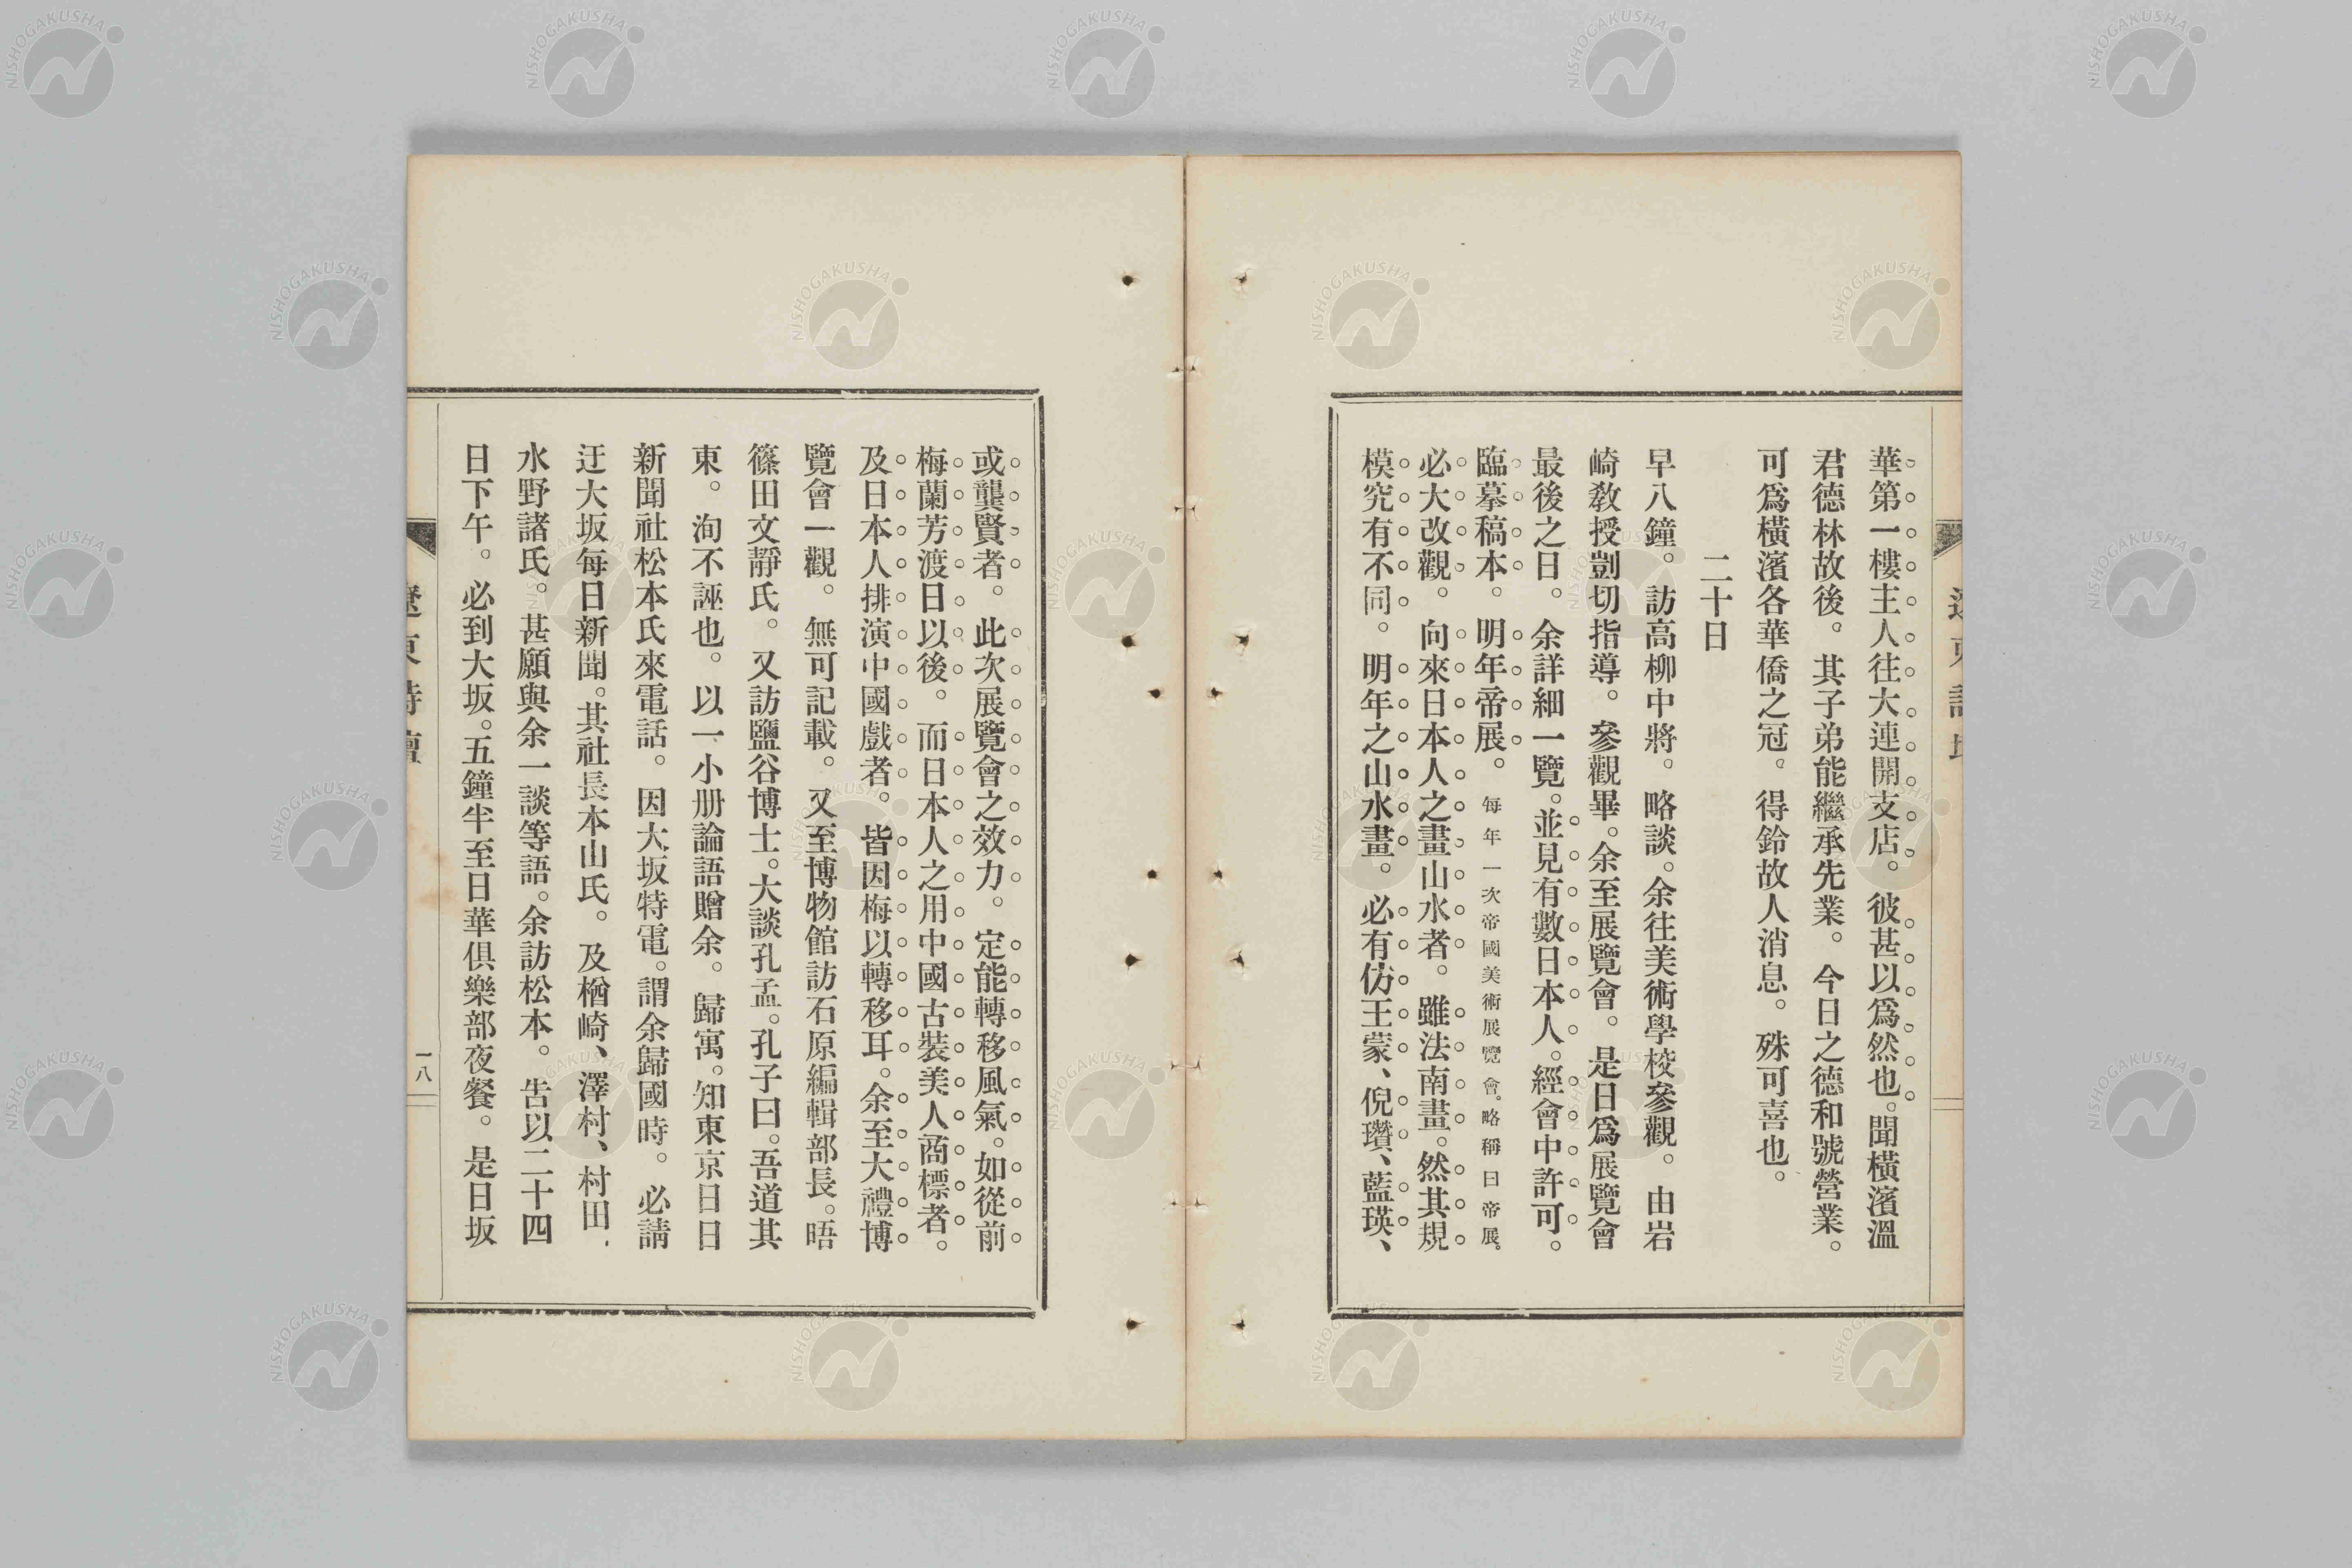 華第一樓主人往大連開支店。彼甚以爲然也。聞橫濱溫
君德林故後。其子弟能繼承先業。今日之德和號營業。
可爲橫濱各華僑之冠。得鈴故人消息。殊可喜也。
二十日
早八鐘。訪高柳中將。略談。余往美術學校參觀。由岩
崎教授剴切指導。參觀畢。余至展覽會。是日爲展覽會
最後之日。余詳細一覽。並見有數日本人。經會中許可。
臨摹稿本。明年帝展。每年一次帝國美術展覽會。略稱曰帝展。
必大改觀。向來日本人之畫山水者。雖法南畫。然其規
模究有不同。明年之山水畫。必有仿王蒙、倪瓚、藍瑛、
或龔賢者。此次展覽會之效力。定能轉移風氣。如從前
梅蘭芳渡日以後。而日本人之用中國古裝美人商標者。
及日本人排演中國戲者。皆因梅以轉移耳。余至大禮博
覽會一觀。無可記載。又至博物館訪石原編輯部長。晤
篠田文靜氏。又訪鹽谷博士。大談孔孟。孔子曰。吾道其
東。洵不誣也。以一小册論語贈余。歸寓。知東京日日
新聞社松本氏來電話。因大坂特電。謂余歸國時。必請
迂大坂每日新聞。其社長本山氏。及楢崎、澤村、村田、
水野諸氏。甚願與余一談等語。余訪松本。告以二十四
日下午。必到大坂。五鐘半至日華俱樂部夜餐。是日坂
遼東詩壇
一八
NISHOGAKUSHA